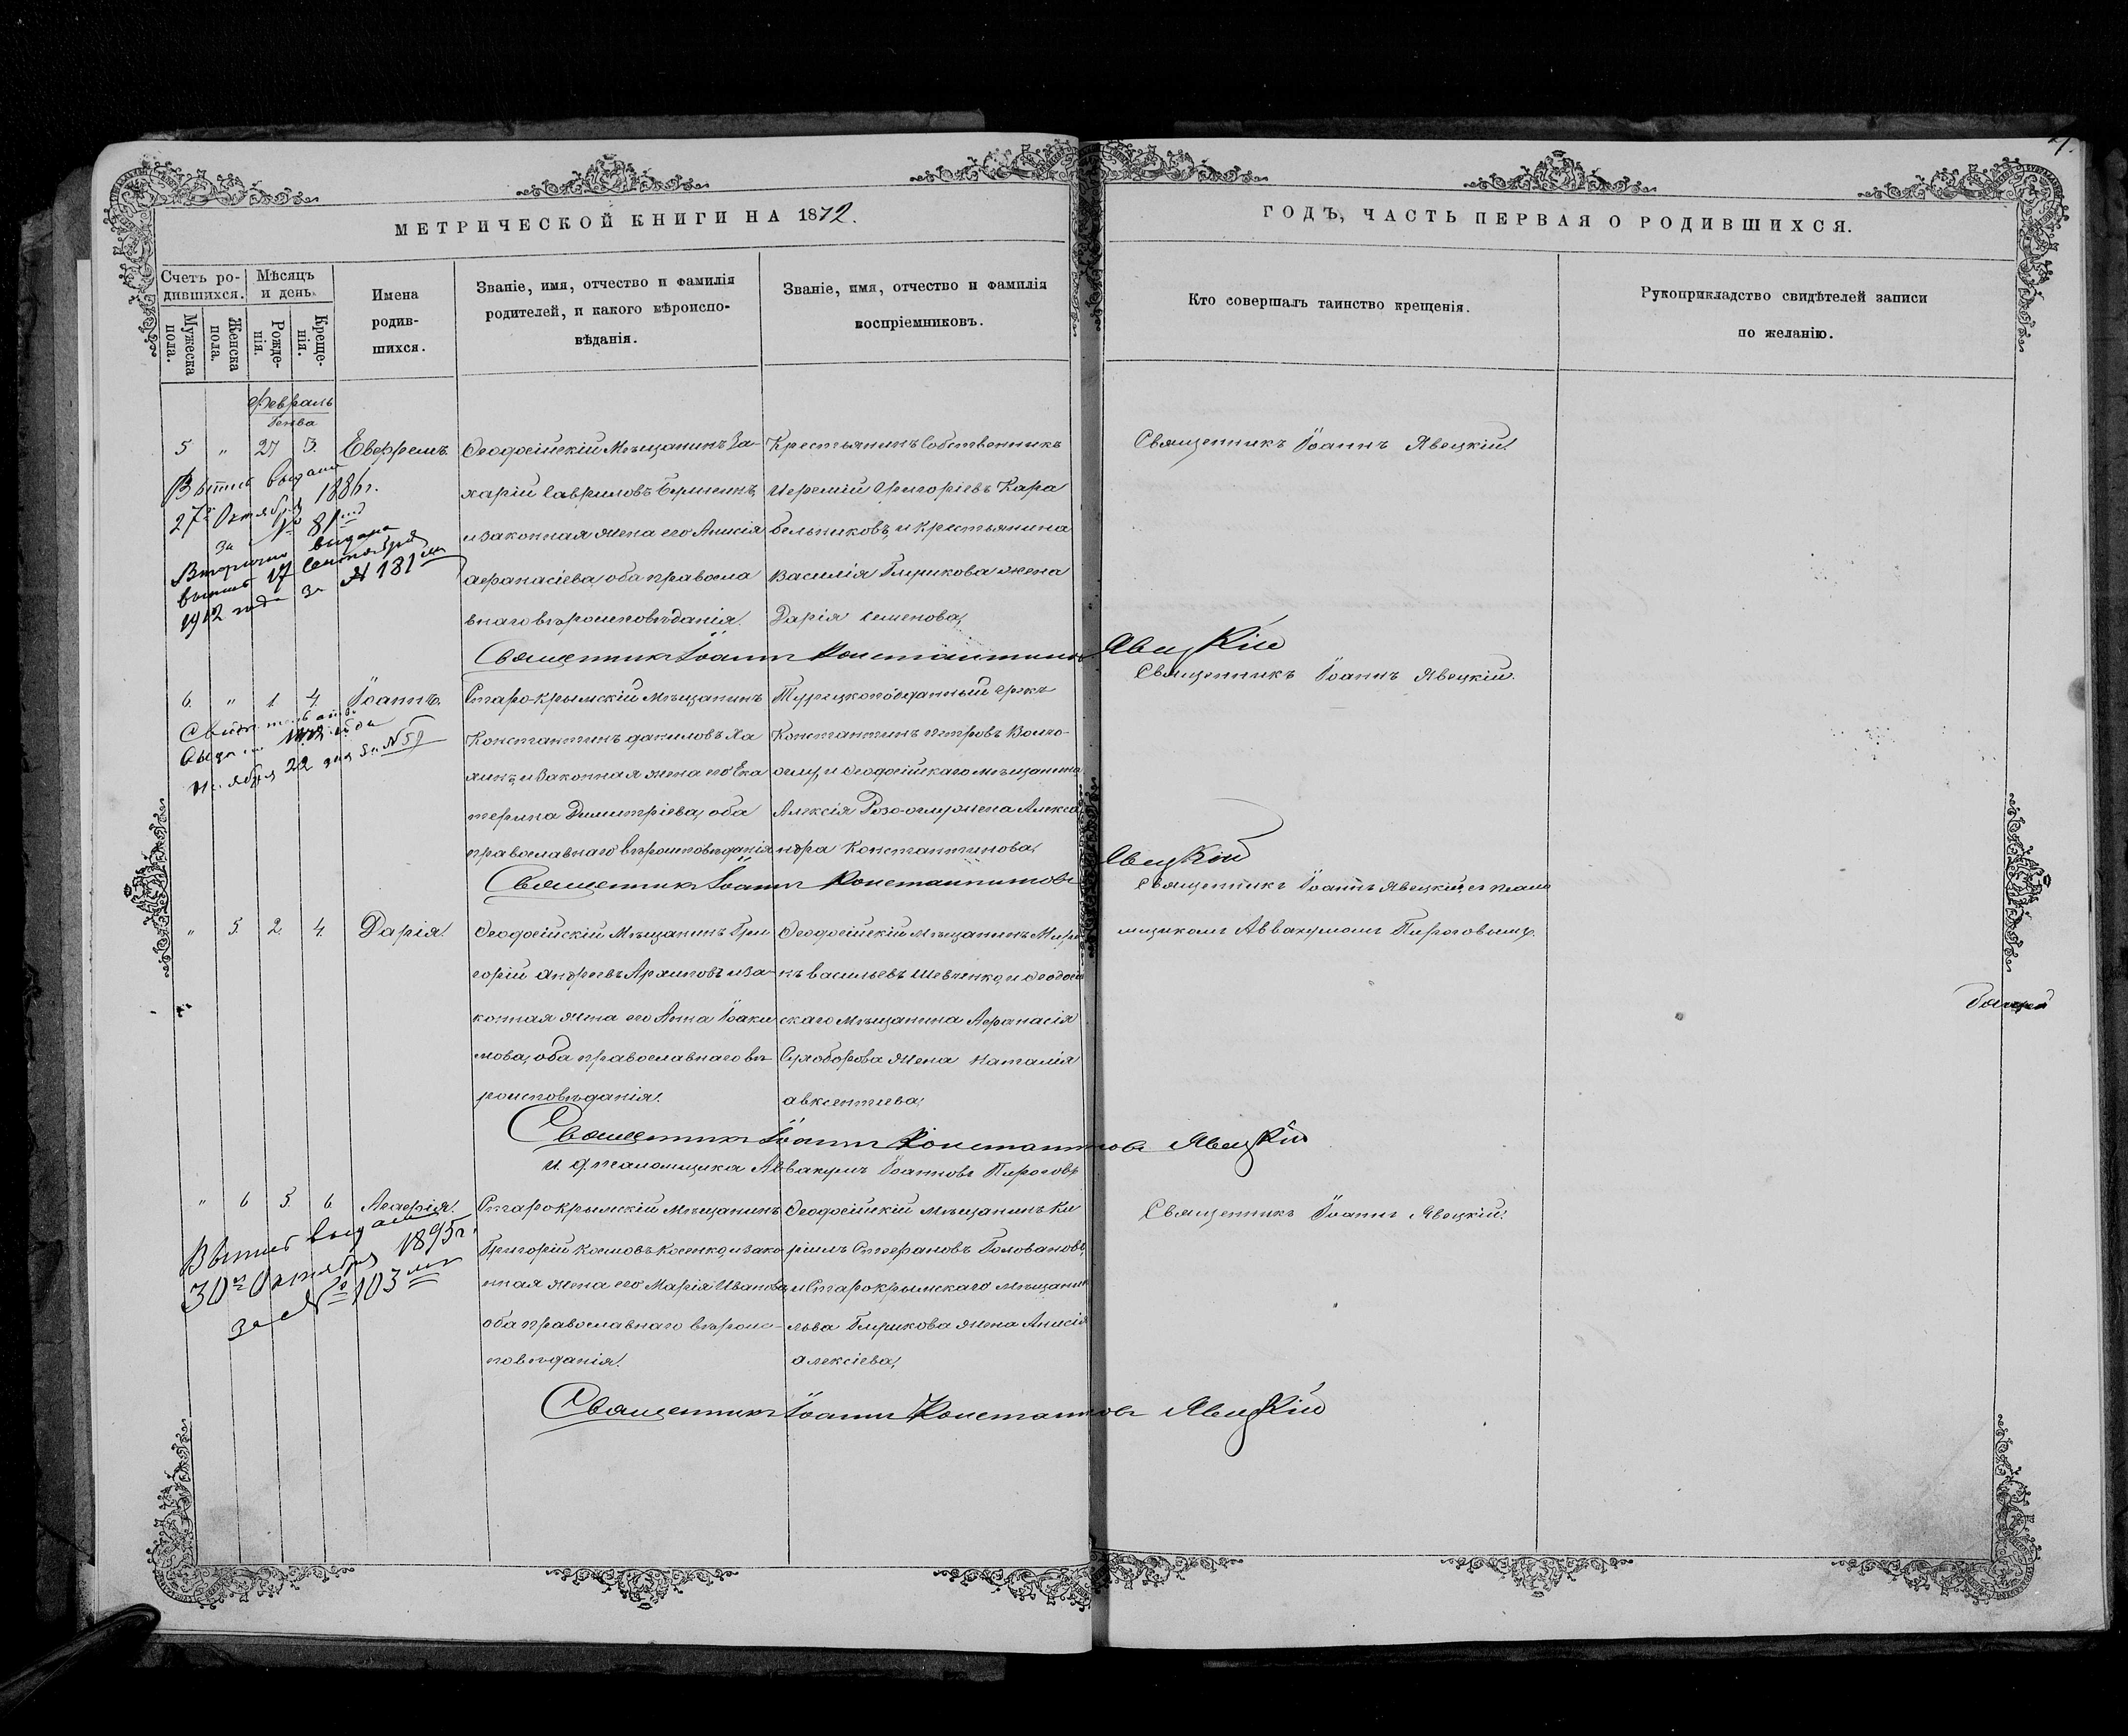 МЕТРИЧЕСКОЙ КНИГИ НА 1872.
ГОДЪ, ЧАСТЬ ПЕРВАЯ О РОДИВШИХСЯ.
Счетъ ро-
дившихся.
Мѣсяцъ
и день.
Мужеска
пола.
Женска
пола.
Рожде-
нія.
Креще-
нія.
Имена
родив-
шихся.
Званіе, имя, отчество и фамилія
родителей, и какого вѣроиспо-
вѣданія.
Званіе, имя, отчество и фамилія
воспріемниковъ.
Кто совершалъ таинство крещенія.
Рукоприкладство свидѣтелей записи
по желанію.
Февраль
5 " 27 3.
Евфремъ
Ѳеодосійскій Мѣщанинъ За-
харій Гавриловъ
и законная жена его Анисія
Афанасіева, оба правосла
внаго вѣроисповѣданія.
Крестьянинъ Собственникъ
Іеремій Григоріевъ Кара
бельниковъ, и крестьянина
Василія жена
Дарія Семенова,
Священникъ Іоаннъ Явецкій.
выдана
27го Октября 1886г.
за № 81
Вторично выдана
17 Сентября
1912 года за № 181
Священникъ Іоаннъ Константиновъ Явецкій
6. " 1. 4.
Іоаннъ.
Старокрымскій Мѣщанинъ
Константинъ Даниловъ Ха
и законная жена его Ека
терина Димитріева, оба
православнаго вѣроисповѣданія
Турецкоподданный грекъ
Константинъ Петровъ
и Ѳеодосійскаго мѣщанина
Алексія жена Алекса
ндра Константинова,
Священникъ Іоаннъ Явецкій.
22 дня за № 59
Священникъ Іоаннъ Константиновъ Явецкій
" 5. 2. 4.
Дарія.
Ѳеодосійскій Мѣщанинъ Гри
горій Андреевъ Архиповъ и за-
конная жена его Анна Іоаки
мова, оба православнаго вѣ
роисповѣданія.
Ѳеодосійскій мѣщанинъ Миро
нъ Васильевъ Шевченко, и Ѳеодосій
скаго Мѣщанина Афанасія
жена Наталія
Авксентиева,
Священникъ Іоаннъ Явецкій, съ псало
мщикомъ Аввакумомъ Пироговымъ.
Священникъ Іоаннъ Константиновъ Явецкій
И. д. псаломщика Аввакумъ Іоанновъ Пироговъ
" 6 5. 6
Агафія.
Старокрымскій Мѣщанинъ
Григорій Косенко, и зако
нная жена его Марія Иванова,
оба православнаго вѣроис-
повѣданія.
Ѳеодосійскій мѣщанинъ Ки
рилъ Стефановъ Головановъ,
и Старокрымскаго мѣщанина
Льва жена Анисія
Алексіева,
Священникъ Іоаннъ Явецкій.
выдана
30го Октября 1895г.
за № 103
Священникъ Іоаннъ Константиновъ Явецкій